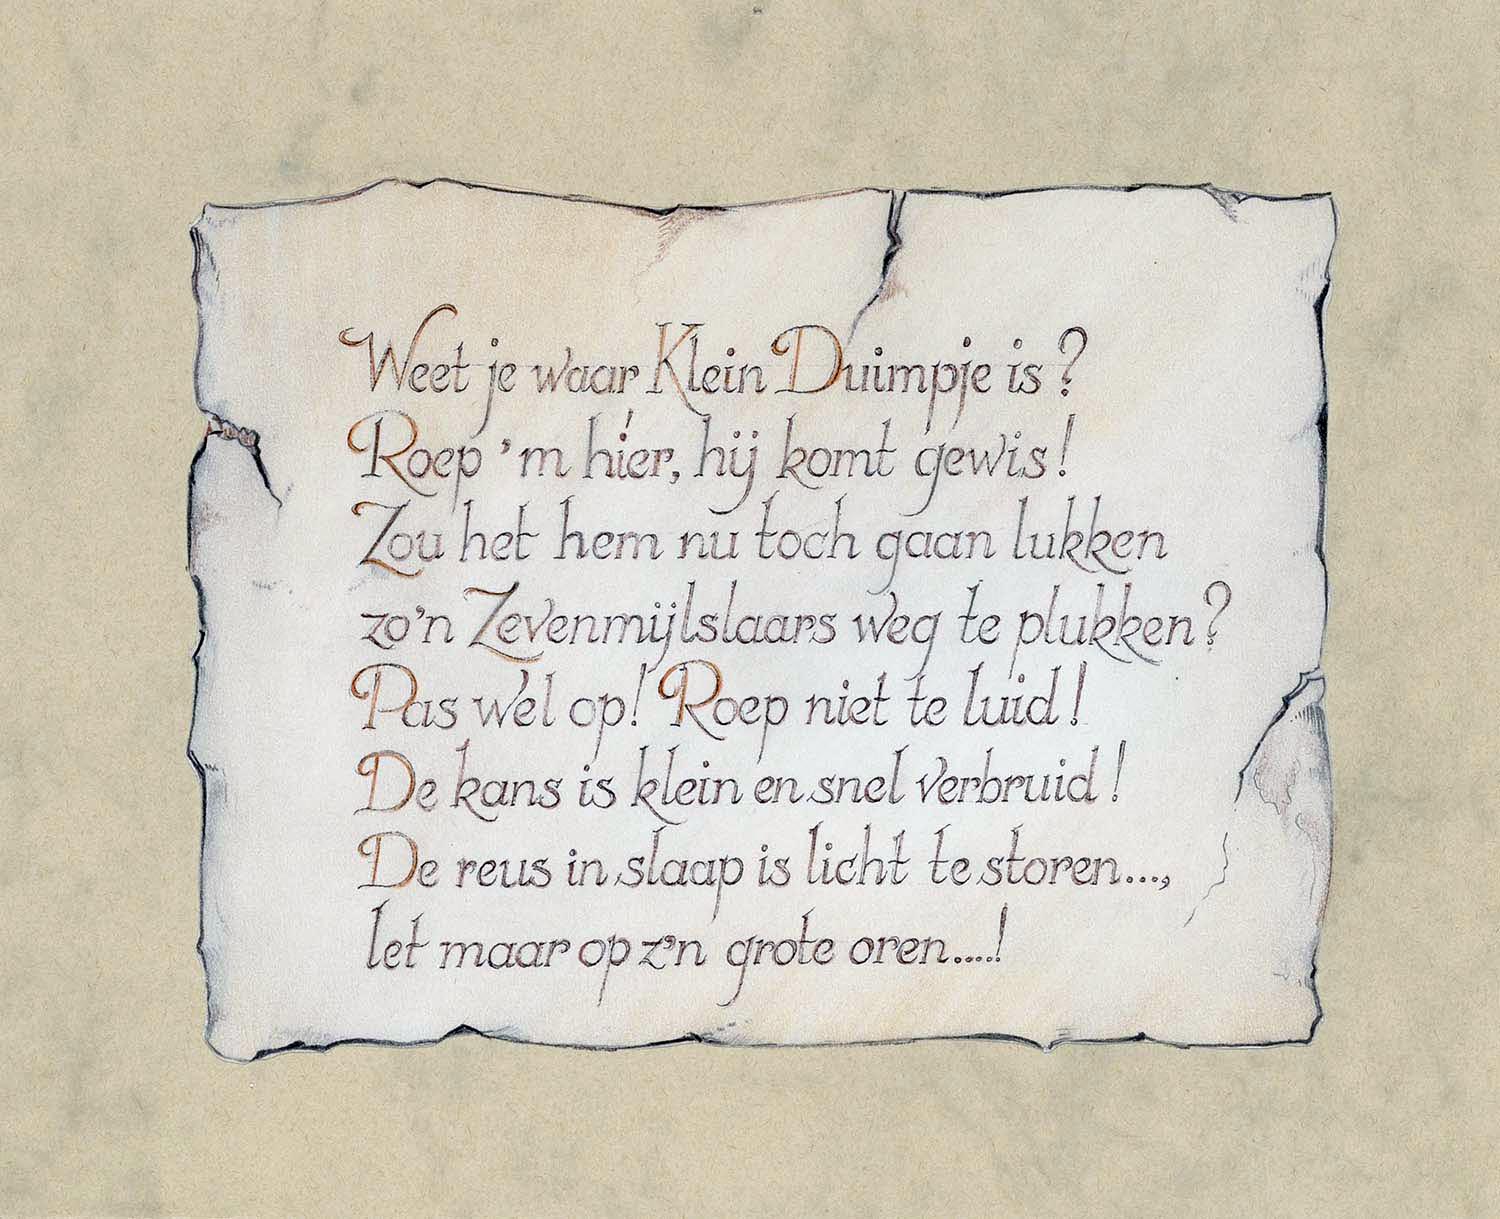 Weet je waar Klein Duimpje is?
Roep 'm híer, hij komt gewis!
Zou het hem nu toch gaan lukken
zo'n Zevenmijlslaars weg te plukken?
Pas wel op! Roep niet te luid!
De kans is klein en snel verbruid!
De reus in slaap is licht te storen...,
let maar op z'n grote oren....!